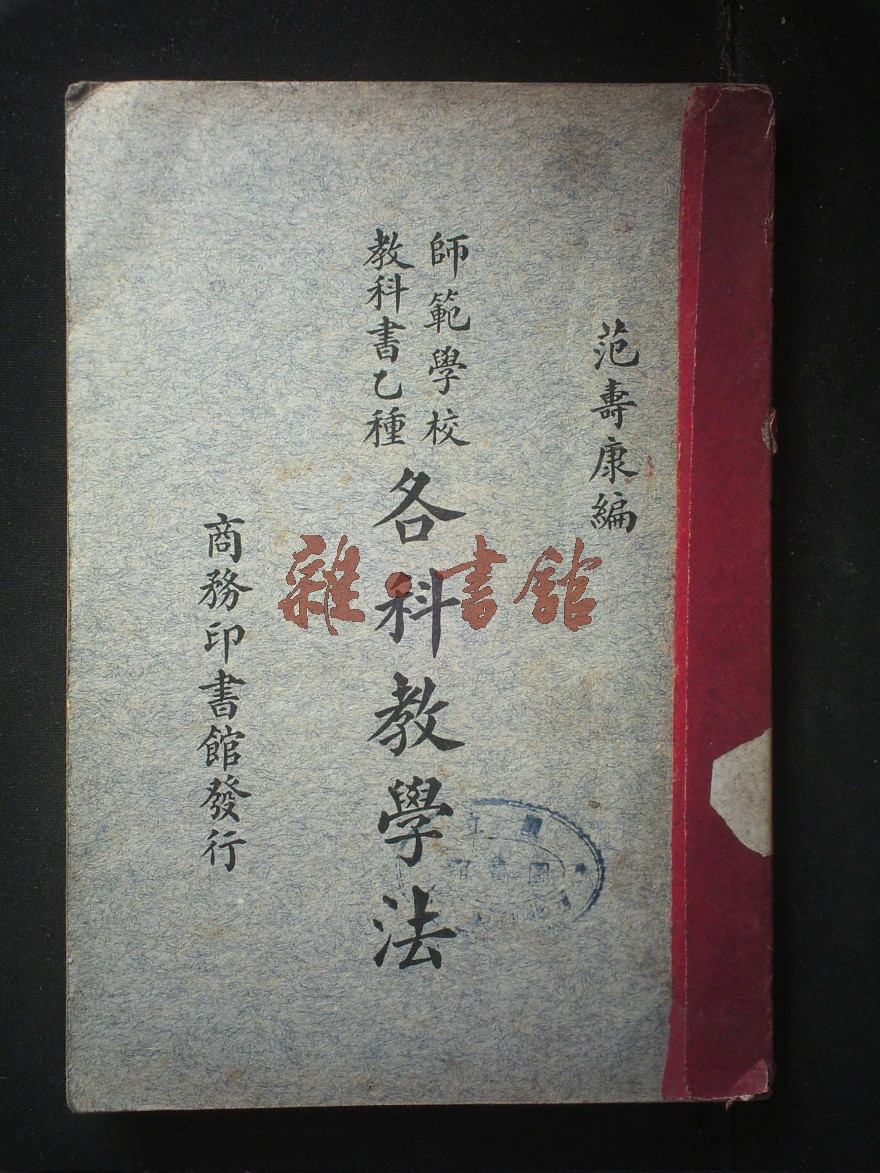 范壽康編
師範學校
教科書乙種
各科教學法
商務印書館發行
雜·書館